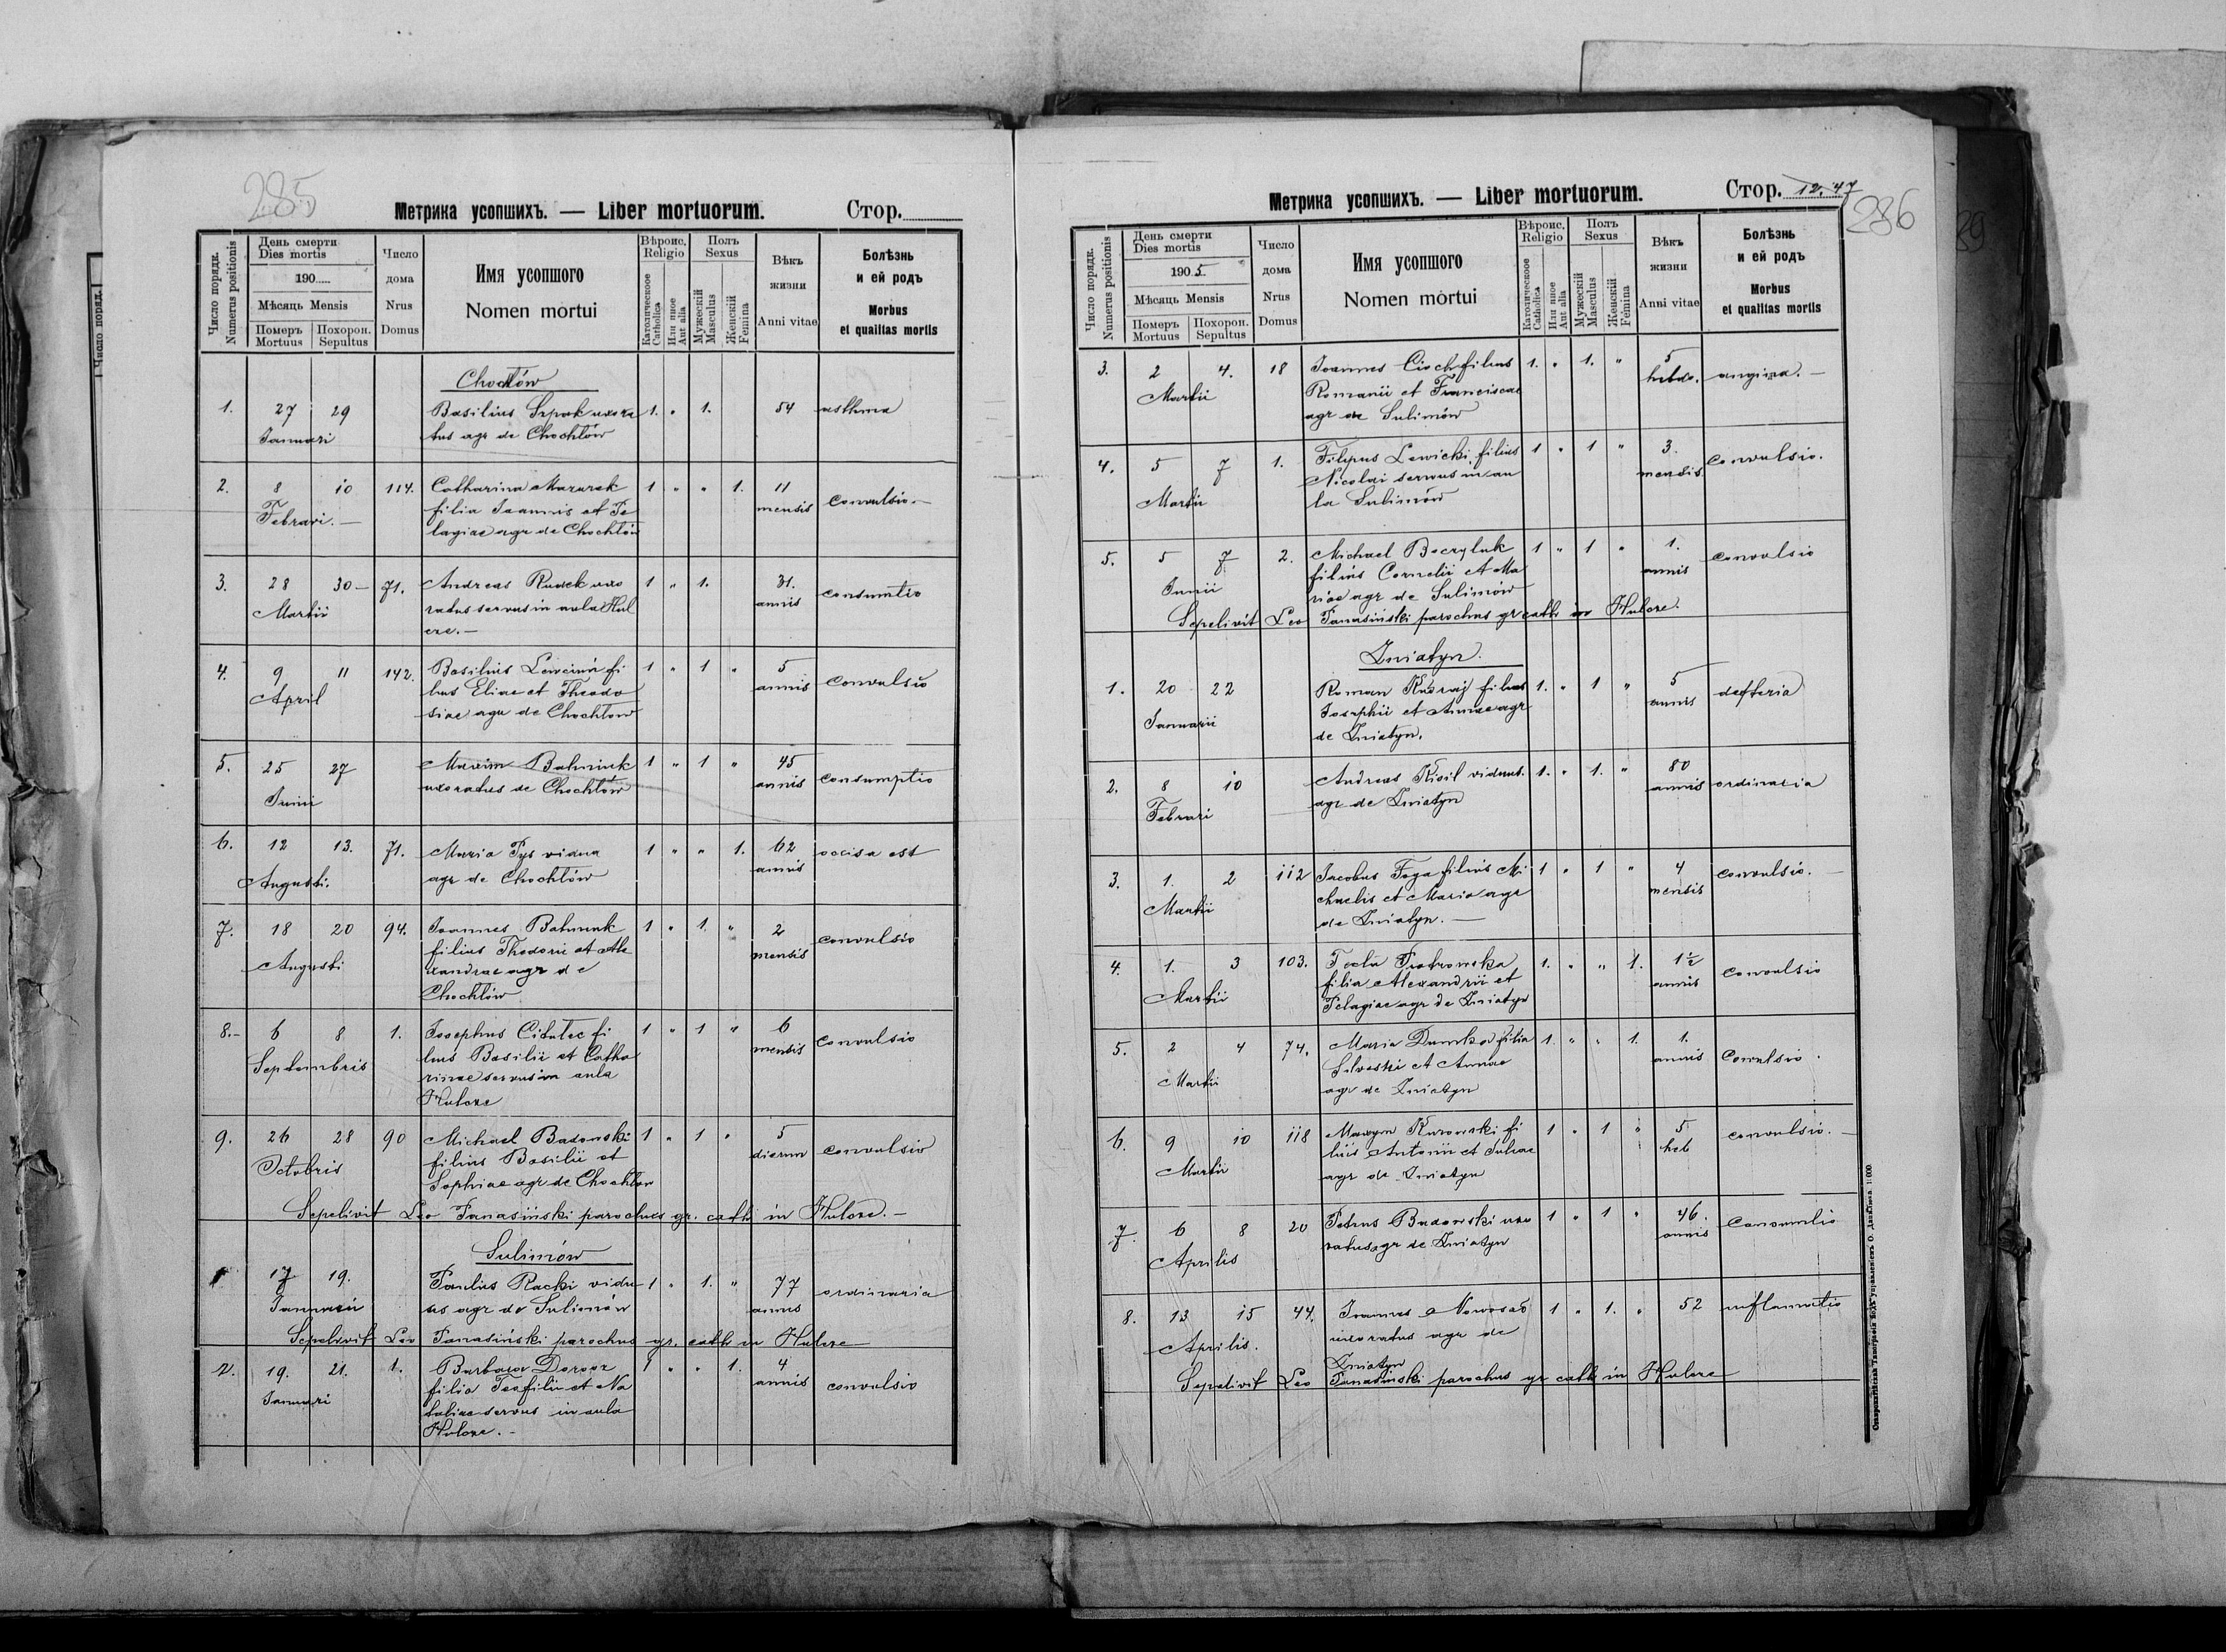 285
Метрика усопшихъ. — Liber mortuorum. Стор.
Число порядк. Numerus positionis
День смерти Dies mortis
190
Мѣсяць Mensis
Померъ Mortuus
Похорон. Sepultus
Число дома Nrus Domus
Имя усопшого Nomen mortui
Вѣроис. Religio
Католическое Catholica
Или иное Aut alia
Полъ Sexus
Мужескій Masculus
Женскій Femina
Вѣкъ жизни Anni vitae
Болѣзнь и ей родъ Morbus et qualitas mortis
Chochłów
1. 27 29 Basilius Szpak uxora 1. " 1. 54 asthma
Januari tus agr de Chochłów
2. 8 10 114. Catharina Mazurek 1 " " 1. 11 convulsio.—
Februari.— filia Joannis et Pe mensis
lagiae agr de Chochłów
3. 28 30— 71. Andreas Rudek uxo 1 " 1. 31. consumtio
Martii ratus servus in aula Hul annis
cze.—
4. 9 11 142. Basilius Lewciun fi 1 " 1 " 5 convulsio
April lius Eliae et Theodo annis
siae agr de Chochłow
5. 25 27 Maxim Bahniuk 1 " 1 " 45 consumptio
Junii uxoratus de Chochłów annis
6. 12 13. 71. Maria Pys vidua 1 " " 1. 62 occisa est
Augusti. agr de Chochłów annis
7. 18 20 94. Joannes Bahniuk 1 " 1. " 2 convulsio
Augusti filius Theodorii et Ale mensis
xandrae agr de
Chochłów
8.- 6 8 1. Josephus Citulec fi 1 " 1 " 6 convulsio
Septembris lius Basilii et Catha mensis
rinae servus in aula
Hulcze
9. 26 28 90 Michael Badowski 1 " 1 " 5 convulsio
Octobris filius Basilii et dierum
Sophiae agr de Chochłow
Sepelivit Leo Panasiński parochus gr. cath in Hulcze.—
Sulimów
1 17 19. Paulus Racki vidu 1 " 1. " 77 ordinaria
Januarii us agr de Sulimów annis
Sepelivit Leo Panasiński parochus gr. cath in Hulcze
2. 19. 21. 1. Barbara Dorosz 1 " " 1. 4 convulsio
Januari filia Teofilii et Na annis
taliae servus in aula
Hulcze.-
Метрика усопшихъ. — Liber mortuorum. Стор. 12. 47
286
Число порядк. Numerus positionis
День смерти Dies mortis
1905
Мѣсяць Mensis
Померъ Mortuus
Похорон. Sepultus
Число дома Nrus Domus
Имя усопшого Nomen mortui
Вѣроис. Religio
Католическое Catholica
Или иное Aut alia
Полъ Sexus
Мужескій Masculus
Женскій Femina
Вѣкъ жизни Anni vitae
Болѣзнь и ей родъ Morbus et qualitas mortis
3. 2 4. 18 Joannes Cioch filius 1. " 1. " 5 angina.—
Martii Romanii et Franciscae hebdo.
agr de Sulimów
4. 5 7 1. Filipus Lewicki filius 1 " 1 " 3. convulsio.
Martii Nicolai servus in au mensis
la Sulimów
5. 5 7 2. Michael Boczyluk 1 " 1 " 1. convulsio
Junii filius Cornelii et Ma annis
riae agr de Sulimów
Sepelivit Leo Panasiński parochus gr cath in Hulcze.
Żniatyn.
1. 20 22 Roman filius 1. " 1 " 5 defteria
Januarii Josephii et Annae agr annis
de Żniatyn.
2. 8 10 Andreas Kisil viduus. 1. " 1. " 80 ordinaria
Februari agr de Żniatyn annis
3. 1. 2 112 Jacobus Foga filius Mi 1 " 1 " 4 convulsio.—
Martii chaelis et Maria agr mensis
de Żniatyn.—
4. 1. 3 103. Tecla Piotrowska 1. " " 1. 1½ convulsio
Martii filia Alexandrii et annis
Pelagiae agr de Żniatyn
5. 2 4 74. Maria Dumka filia 1. " " 1. 1. Convulsio.
Martii Silvestri et Annae annis
agr de Żniatyn
6. 9 10 118 Maxym Kurowski fi 1 " 1 " 5 convulsio.—
Martii lius Antonii et Juliae heb
agr de Żniatyn
7. 6 8 20 Petrus Badowski uxo 1 " 1 " 46. Consumtio
Aprilis ratus agr de Żniatyn annis
8. 13 15 44. Joannes Nowosad 1 " 1. " 52 inflamatio
Aprilis. uxoratus agr de
Żniatyn
Sepelivit Leo Panasiński parochus gr cath in Hulcze